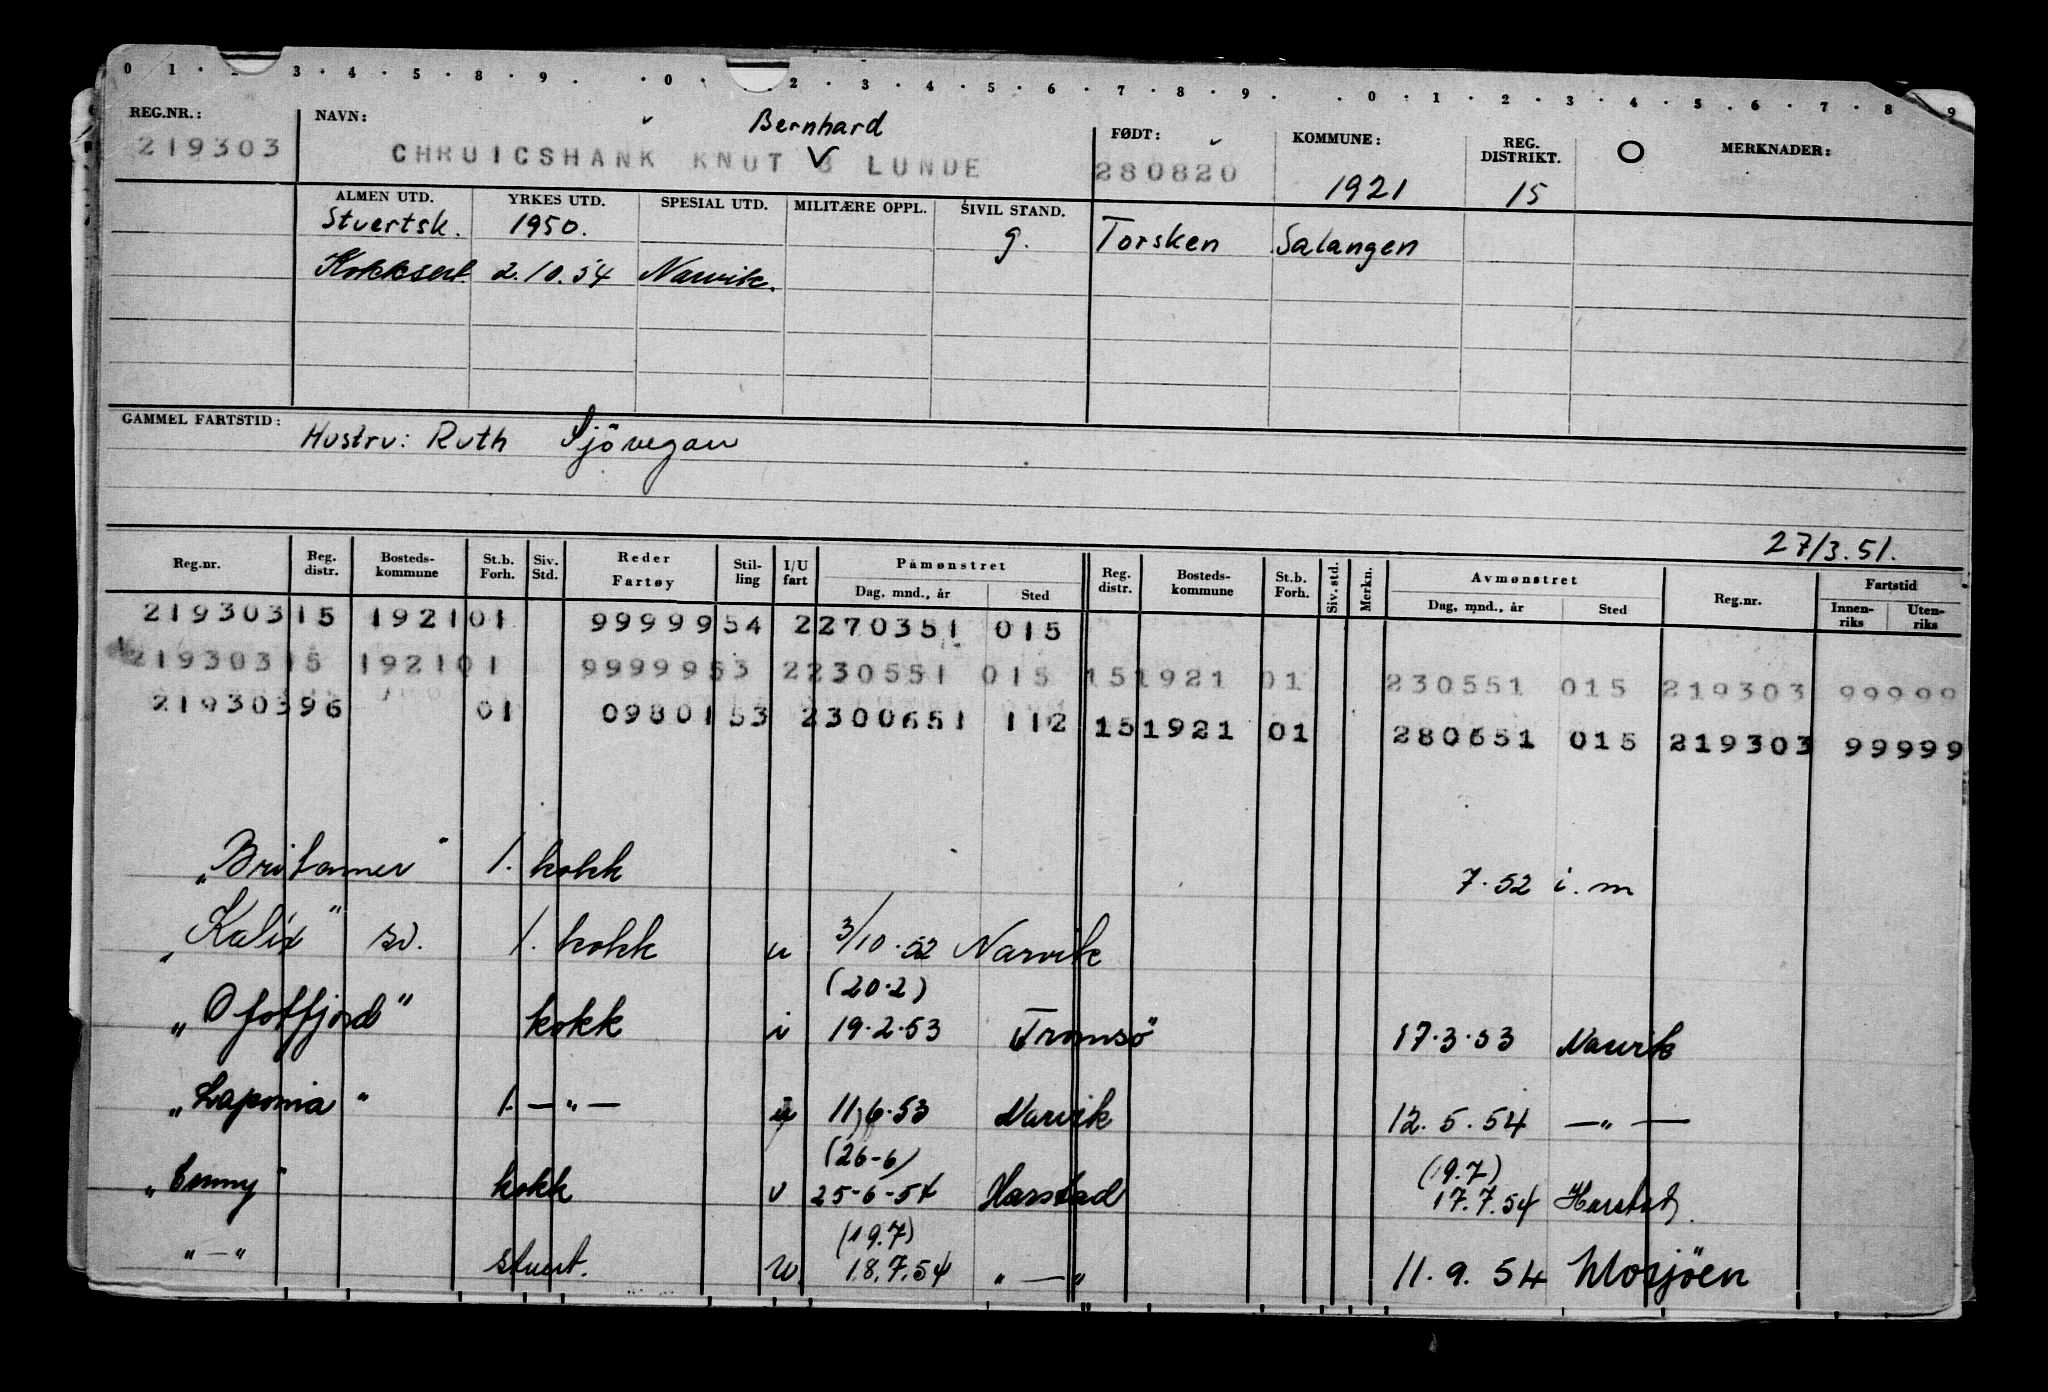 0 1 · 2 3 · 4 · 5 · 8 · 9 · · 0 · 2 · 3 · 4 · 5 · 6 · 7 · 8 · 9 · · 0 · 1 · 2 · 3 · 4 · 5 · 6 · 7 · 8 9
REG.NR.: NAVN: Bernhard FØDT: KOMMUNE: REG. DISTRIKT. O MERKNADER:
219303 CHRUICSHANK KNUT B LUNDE 280820 1921 15
ALMEN UTD. YRKES UTD. SPESIAL UTD. MILITÆRE OPPL. SIVIL STAND.
Stuertsk. 1950. g. Torsken Salangen
Kokksert. 2.10.54 Narvik.
GAMMEL FARTSTID: Hustru: Ruth Sjövegan
27/3.51.
Reg.nr. Reg. distr. Bosteds-kommune St.b. Forh. Siv. Std. Reder Fartøy Stil-ling I/U fart Påmønstret Reg. distr. Bosteds-kommune St.b. Forh. Siv. std. Merkn. Avmønstret Reg.nr. Fartstid
Dag, mnd., år Sted Dag, mnd., år Sted Innen-riks Uten-riks
219303 15 1921 01 99999 54 2 270351 015
219303 15 1921 01 99999 53 2 230551 015 15 1921 01 230551 015 219303 99999
219303 96 01 09801 53 2 300651 112 15 1921 01 280651 015 219303 99999
„Britamer" 1. kokk 7.52 i.m
„Kalix" sv. 1. kokk u 3/10.52 Narvik
(20.2)
„Ofotfjord" kokk i 19.2.53 Tromsö 17.3.53 Narvik
„Laponia" 1. —„— u 11.6.53 Narvik 12.5.54 —„—
(26-6) (19.7)
„Conny" kokk u 25-6-54 Harstad 17.7.54 Harstad.
(19.7)
"—" stuert. u. 18.7.54 "—" 11.9.54 Mosjöen